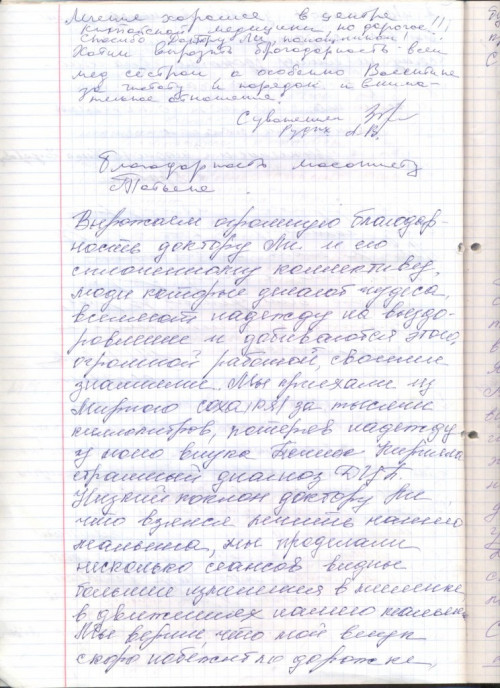 Лечение хорошее в центре
китайской медицины но дорогое!!!
Спасибо доктору Ли, помощникам!
Хотим выразить благодарность всем
мед сёстрам а особенно Валентине
за чистоту и порядок и внима-
тельное отношение!
С уважением
Рудых А.В.
Благодарность массажисту
Татьяне.
Выражаем огромную благодар-
ность доктору Ли. и его
сплоченному коллективу,
люди которые делают чудеса,
вселяют надежду на выздо-
ровление и добиваются этого,
огромной работой, своими
знаниями. Мы приехали из
Мирного саха(ря) за тысячи
километров, потеряв надежду
у моего внука Кирилла
страшный диагноз ДЦП.
Низкий поклон доктору Ли
что взялся лечить нашего
малыша, мы проделали
несколько сеансов видны
большие изменения в
в движениях нашего малыша
Мы верим, что мой внук
скоро побежит по дорожке,